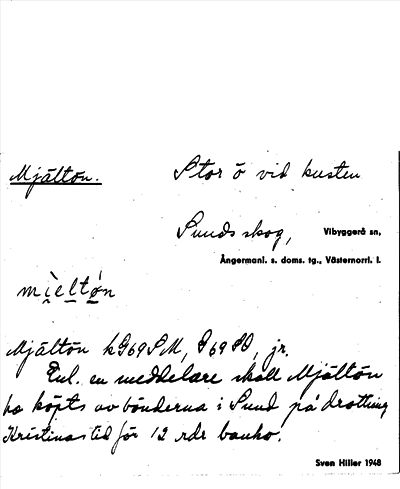 Mjältön. Stor ö vid kusten
Sundsskog, Vibyggerå sn,
Ångermanl. s. doms. tg., Västernorrl. l.
mìeltón
Mjältön kG69SM, G69SO, jr.
Enl. en meddelare skall Mjältön
ha köpts av bönderna i Sund på drottning
Kristinas tid för 12 rdr banko.
Sven Hiller 1948